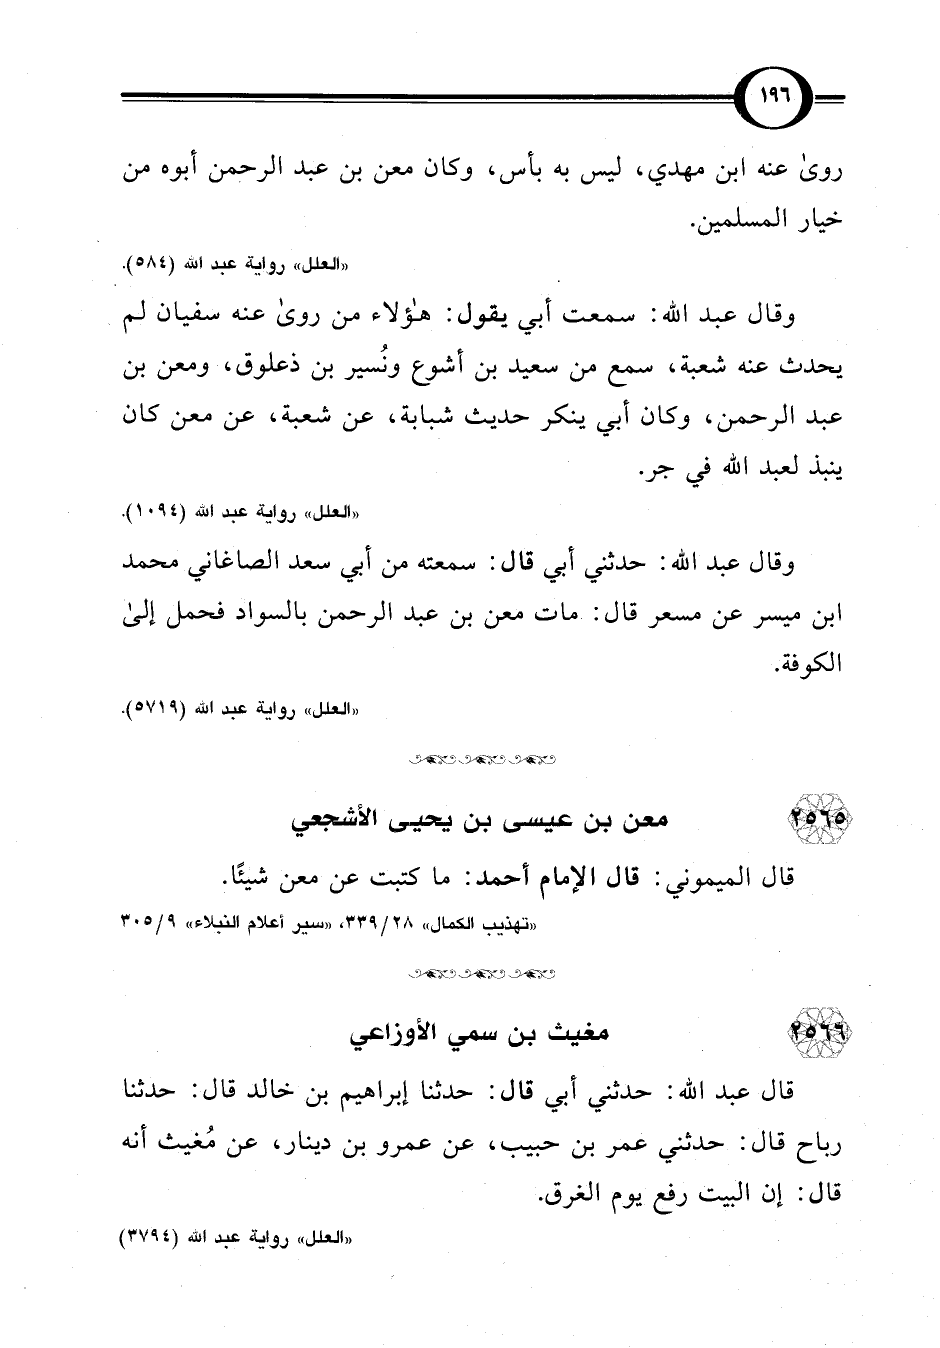 ١٩٦
روىٰ عنه ابن مهدي، ليس به بأس، وكان معن بن عبد الرحمن أبوه من
خيار المسلمين.
«العلل» رواية عبد الله (٥٨٤).
وقال عبد الله: سمعت أبي يقول: هؤلاء من روىٰ عنه سفيان لم
يحدث عنه شعبة، سمع من سعيد بن أشوع ونُسير بن ذعلوق، ومعن بن
عبد الرحمن، وكان أبي ينكر حديث شبابة، عن شعبة، عن معن كان
ينبذ لعبد الله في جر.
«العلل» رواية عبد الله (١٠٩٤).
وقال عبد الله: حدثني أبي قال: سمعته من أبي سعد الصاغاني محمد
ابن ميسر عن مسعر قال: مات معن بن عبد الرحمن بالسواد فحمل إلىٰ
الكوفة.
«العلل» رواية عبد الله (٥٧١٩).
٢٥٦٥ معن بن عيسى بن يحيى الأشجعي
قال الميموني: قال الإمام أحمد: ما كتبت عن معن شيئًا.
«تهذيب الكمال» ٢٨/ ٣٣٩، «سير أعلام النبلاء» ٩/ ٣٠٥
٢٥٦٦ مغيث بن سمي الأوزاعي
قال عبد الله: حدثني أبي قال: حدثنا إبراهيم بن خالد قال: حدثنا
رباح قال: حدثني عمر بن حبيب، عن عمرو بن دينار، عن مُغيث أنه
قال: إن البيت رفع يوم الغرق.
«العلل» رواية عبد الله (٣٧٩٤)